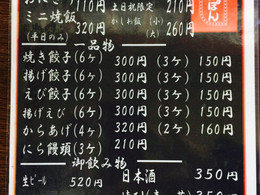 110円 土日祝限定 210円
ミニ焼飯 かしわ飯 (小)
(平日のみ) 320円 (大) 260円
ぽん
一品物
焼き餃子(6ヶ) 300円 (3ヶ) 150円
揚げ餃子(6ヶ) 300円 (3ヶ) 150円
えび餃子(6ヶ) 300円 (3ヶ) 150円
揚げえび(6ヶ) 300円 (3ヶ) 150円
からあげ(4ヶ) 320円 (2ヶ) 160円
にら饅頭(3ケ) 210円
御飲み物
生ビール 520円 日本酒 350円